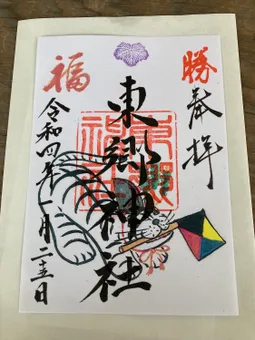 勝
奉拝
東郷神社
福
令和四年一月二十五日